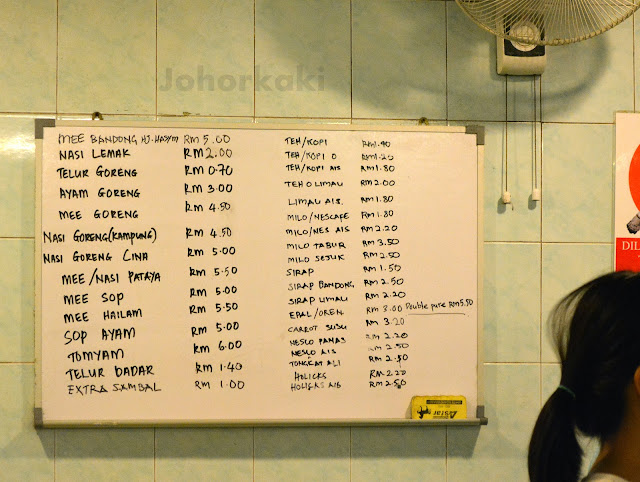 Johorkaki
MEE BANDONG HJ. HASYM RM 5.00
NASI LEMAK RM 2.00
TELUR GORENG RM 0.70
AYAM GORENG RM 3.00
MEE GORENG RM 4.50
NASI GORENG(KAMPUNG) RM 4.50
NASI GORENG CINA RM 5.00
MEE/NASI PATAYA RM 5.50
MEE SOP RM 5.00
MEE HAILAM RM 5.50
SOP AYAM RM 5.00
TOMYAM RM 6.00
TELUR DADAR RM 1.40
EXTRA SAMBAL RM 1.00
TEH/KOPI RM1.40
TEH/KOPI O RM1.20
TEH/KOPI AIS RM1.80
TEH O LIMAU RM2.00
LIMAU AIS. RM1.80
MILO/NESCAFE RM1.80
MILO/NES AIS RM2.20
MILO TABUR RM3.50
MILO SEJUK RM2.50
SIRAP RM1.50
SIRAP BANDONG RM2.50
SIRAP LIMAU RM2.20
EPAL/OREN RM3.00 Double pure RM5.50
CARROT SUSU RM3.20
NESLO PANAS RM2.20
NESLO AIS RM2.50
TONGKAT ALI RM2.50
HOLICKS RM2.20
HOLICKS AIS RM2.50
Astar
DIL